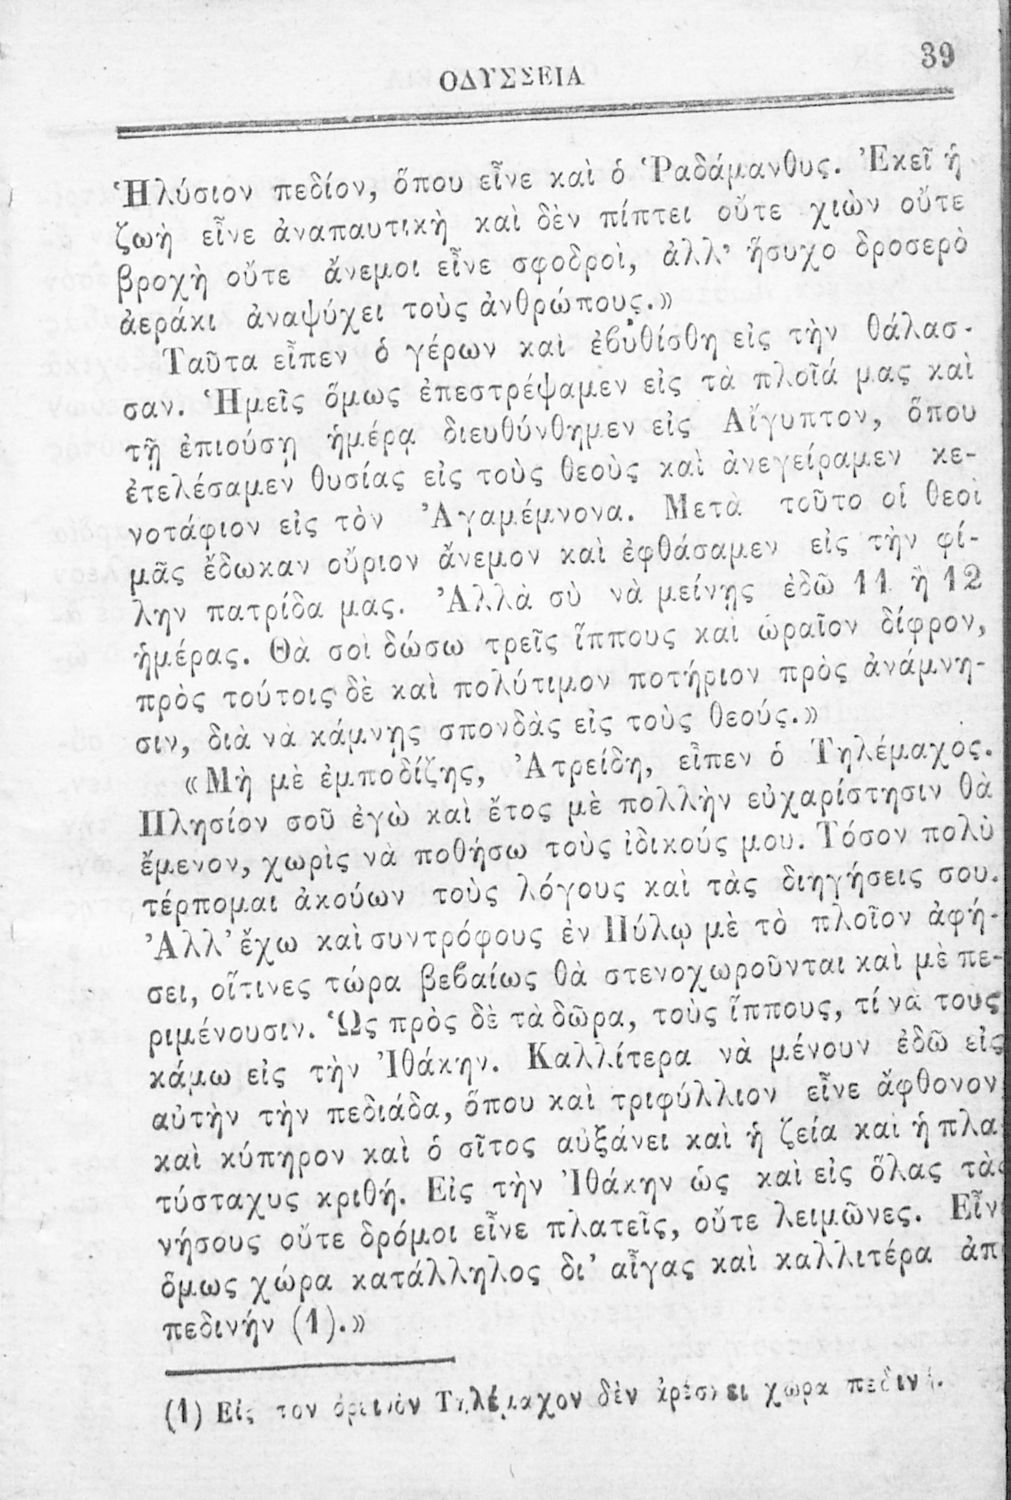 39
ΟΔΥΣΣΕΙΑ
Ἠλύσιον πεδίον, ὅπου εἶνε καὶ ὁ Ῥαδάμανθυς. Ἐκεῖ ἡ
ζωὴ εἶνε ἀναπαυτικὴ καὶ δὲν πίπτει οὔτε χιὼν οὔτε
βροχὴ οὔτε ἄνεμοι εἶνε σφοδροὶ, ἀλλ’ ἥσυχο δροσερὸ
ἀεράκι ἀναψύχει τοὺς ἀνθρώπους.»
Ταῦτα εἶπεν ὁ γέρων καὶ ἐβυθίσθη εἰς τὴν θάλασ-
σαν. Ἡμεῖς ὅμως ἐπεστρέψαμεν εἰς τὰ πλοῖά μας καὶ
τῇ ἐπιούσῃ ἡμέρᾳ διευθύνθημεν εἰς Αἴγυπτον, ὅπου
ἐτελέσαμεν θυσίας εἰς τοὺς θεοὺς καὶ ἀνεγείραμεν κε-
νοτάφιον εἰς τὸν Ἀγαμέμνονα. Μετὰ τοῦτο οἱ θεοὶ
μᾶς ἔδωκαν οὔριον ἄνεμον καὶ ἐφθάσαμεν εἰς τὴν φί-
λην πατρίδα μας. Ἀλλὰ σὺ νὰ μείνῃς ἐδῶ 11 ἢ 12
ἡμέρας. Θὰ σοὶ δώσω τρεῖς ἵππους καὶ ὡραῖον δίφρον,
πρὸς τούτοις δὲ καὶ πολύτιμον ποτήριον πρὸς ἀνάμνη-
σιν, διὰ νὰ κάμνῃς σπονδὰς εἰς τοὺς θεούς.»
«Μὴ μὲ ἐμποδίζῃς, Ἀτρείδη, εἶπεν ὁ Τηλέμαχος.
Πλησίον σοῦ ἐγὼ καὶ ἔτος μὲ πολλὴν εὐχαρίστησιν θὰ
ἔμενον, χωρὶς νὰ ποθήσω τοὺς ἰδικούς μου. Τόσον πολὺ
τέρπομαι ἀκούων τοὺς λόγους καὶ τὰς διηγήσεις σου.
Ἀλλ’ ἔχω καὶ συντρόφους ἐν Πύλῳ μὲ τὸ πλοῖον ἀφή-
σει, οἵτινες τώρα βεβαίως θὰ στενοχωροῦνται καὶ μὲ πε-
ριμένουσιν. Ὡς πρὸς δὲ τὰ δῶρα, τοὺς ἵππους, τί νὰ τοὺς
κάμω εἰς τὴν Ἰθάκην. Καλλίτερα νὰ μένουν ἐδῶ εἰς
αὐτὴν τὴν πεδιάδα, ὅπου καὶ τριφύλλιον εἶνε ἄφθονον
καὶ κύπηρον καὶ ὁ σῖτος αὐξάνει καὶ ἡ ζεία καὶ ἡ πλα
τύσταχυς κριθή. Εἰς τὴν Ἰθάκην ὡς καὶ εἰς ὅλας τὰς
νήσους οὔτε δρόμοι εἶνε πλατεῖς, οὔτε λειμῶνες. Εἶν
ὅμως χώρα κατάλληλος δι’ αἶγας καὶ καλλιτέρα ἀπ
πεδινήν (1).»
(1) Εἰς τὸν ὀρεινὸν Τηλέμαχον δὲν ἀρέσκει χώρα πεδινή.